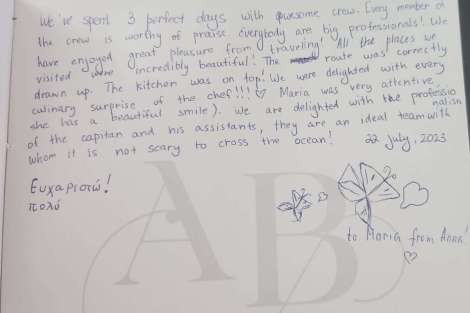 We've spent 3 perfect days with awesome crew. Every member of
the crew is worthy of praise. Everybody are big professionals! We
have enjoyed great pleasure from traveling! All the places we
visited were incredibly beautiful! The route was correctly
drawn up. The kitchen was on top! We were delighted with every
culinary surprise of the chef!!! ♡ Maria was very attentive
she has a beautiful smile). We are delighted with the professio
nalism
of the capitan and his assistants, they are an ideal team with
whom it is not scary to cross the ocean! 22 July, 2023
Ευχαριστώ!
πολύ
to Maria from Anna!
AB